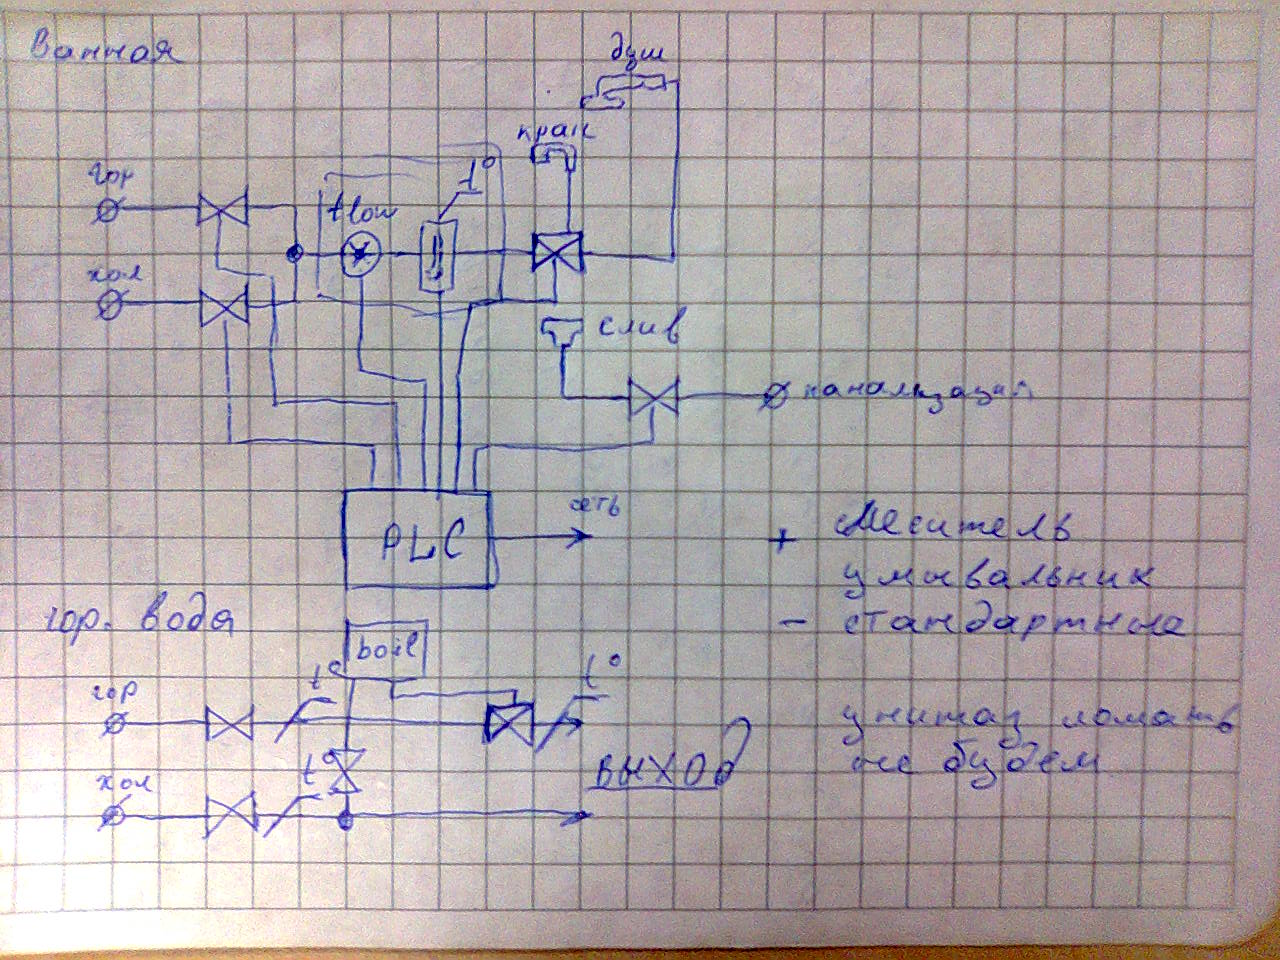 Ванная
душ
кран
t°
гор
flow
хол
слив
канализация
PLC
сеть
+ смеситель
умывальник
- стандартные
гор. вода
boil
t°
t°
гор
унитаз ломать
не будем
выход
t°
хол